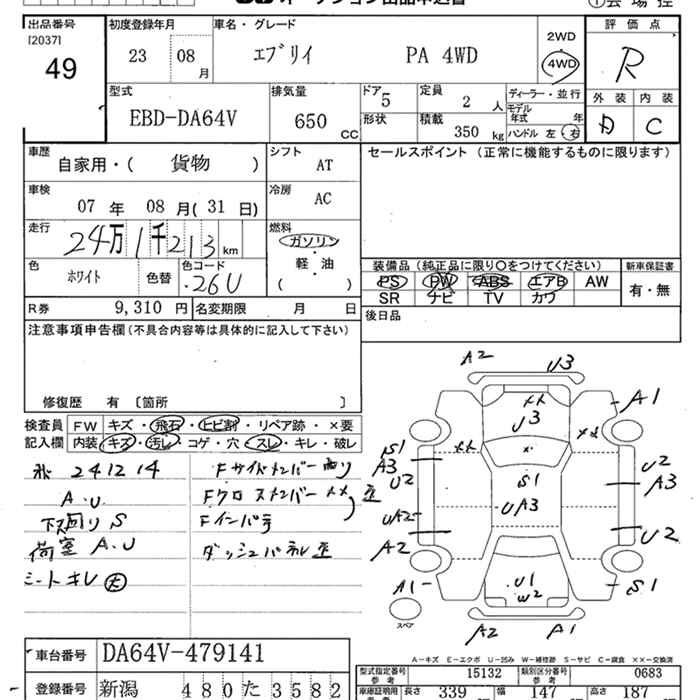 出品番号 初度登録年月 車名・グレード 評価点
[2037] 2WD
49 23 08月 エブリイ PA 4WD 4WD R
型式 排気量 ドア5 定員 2人 ディーラー・並行 外装 内装
EBD-DA64V 650 CC 形状 積載 350 kg モデル年式 年 C
ハンドル 左・右
車歴 シフト セールスポイント (正常に機能するものに限ります)
自家用・( 貨物 ) AT
車検 冷房
07年 08月(31日) AC
走行 燃料
24万1千213km ガソリン
色 色コード 軽・油
ホワイト 色替 26U ( )
装備品 (純正品に限り〇をつけてください) 新車保証書
PS PW ABS エアB AW 有・無
SR ナビ TV カワ
R券 9,310円 名変期限 月 日 後日品
注意事項申告欄(不具合内容等は具体的に記入して下さい)
修復歴 有 〔箇所 〕
検査員 FW キズ・飛石・ヒビ割・リペア跡・×要
記入欄 内装 キズ・汚レ・コゲ・穴・スレ・キレ・破レ
24.12.14
A.U
下廻りS
荷室 A.U
シートキレ 大
Fサイドメンバー曲り
Fクロスメンバー××
Fインパネ
ダッシュパネル歪
A2 U3
A1
U3
S1 A3 U2
S1
UA3
U2 A3
UA2 A2
U2
A1
U1 W2
S1
スペア
A2 A1
A-キズ E-エクボ U-凹み W-補修跡 S-サビ C-腐食 ××-交換済
車台番号 DA64V-479141
登録番号 新潟 480た3582
型式指定番号 15132 類別区分番号 0683
参考 参考
車庫証明用 長さ 339 幅 147 高さ 187